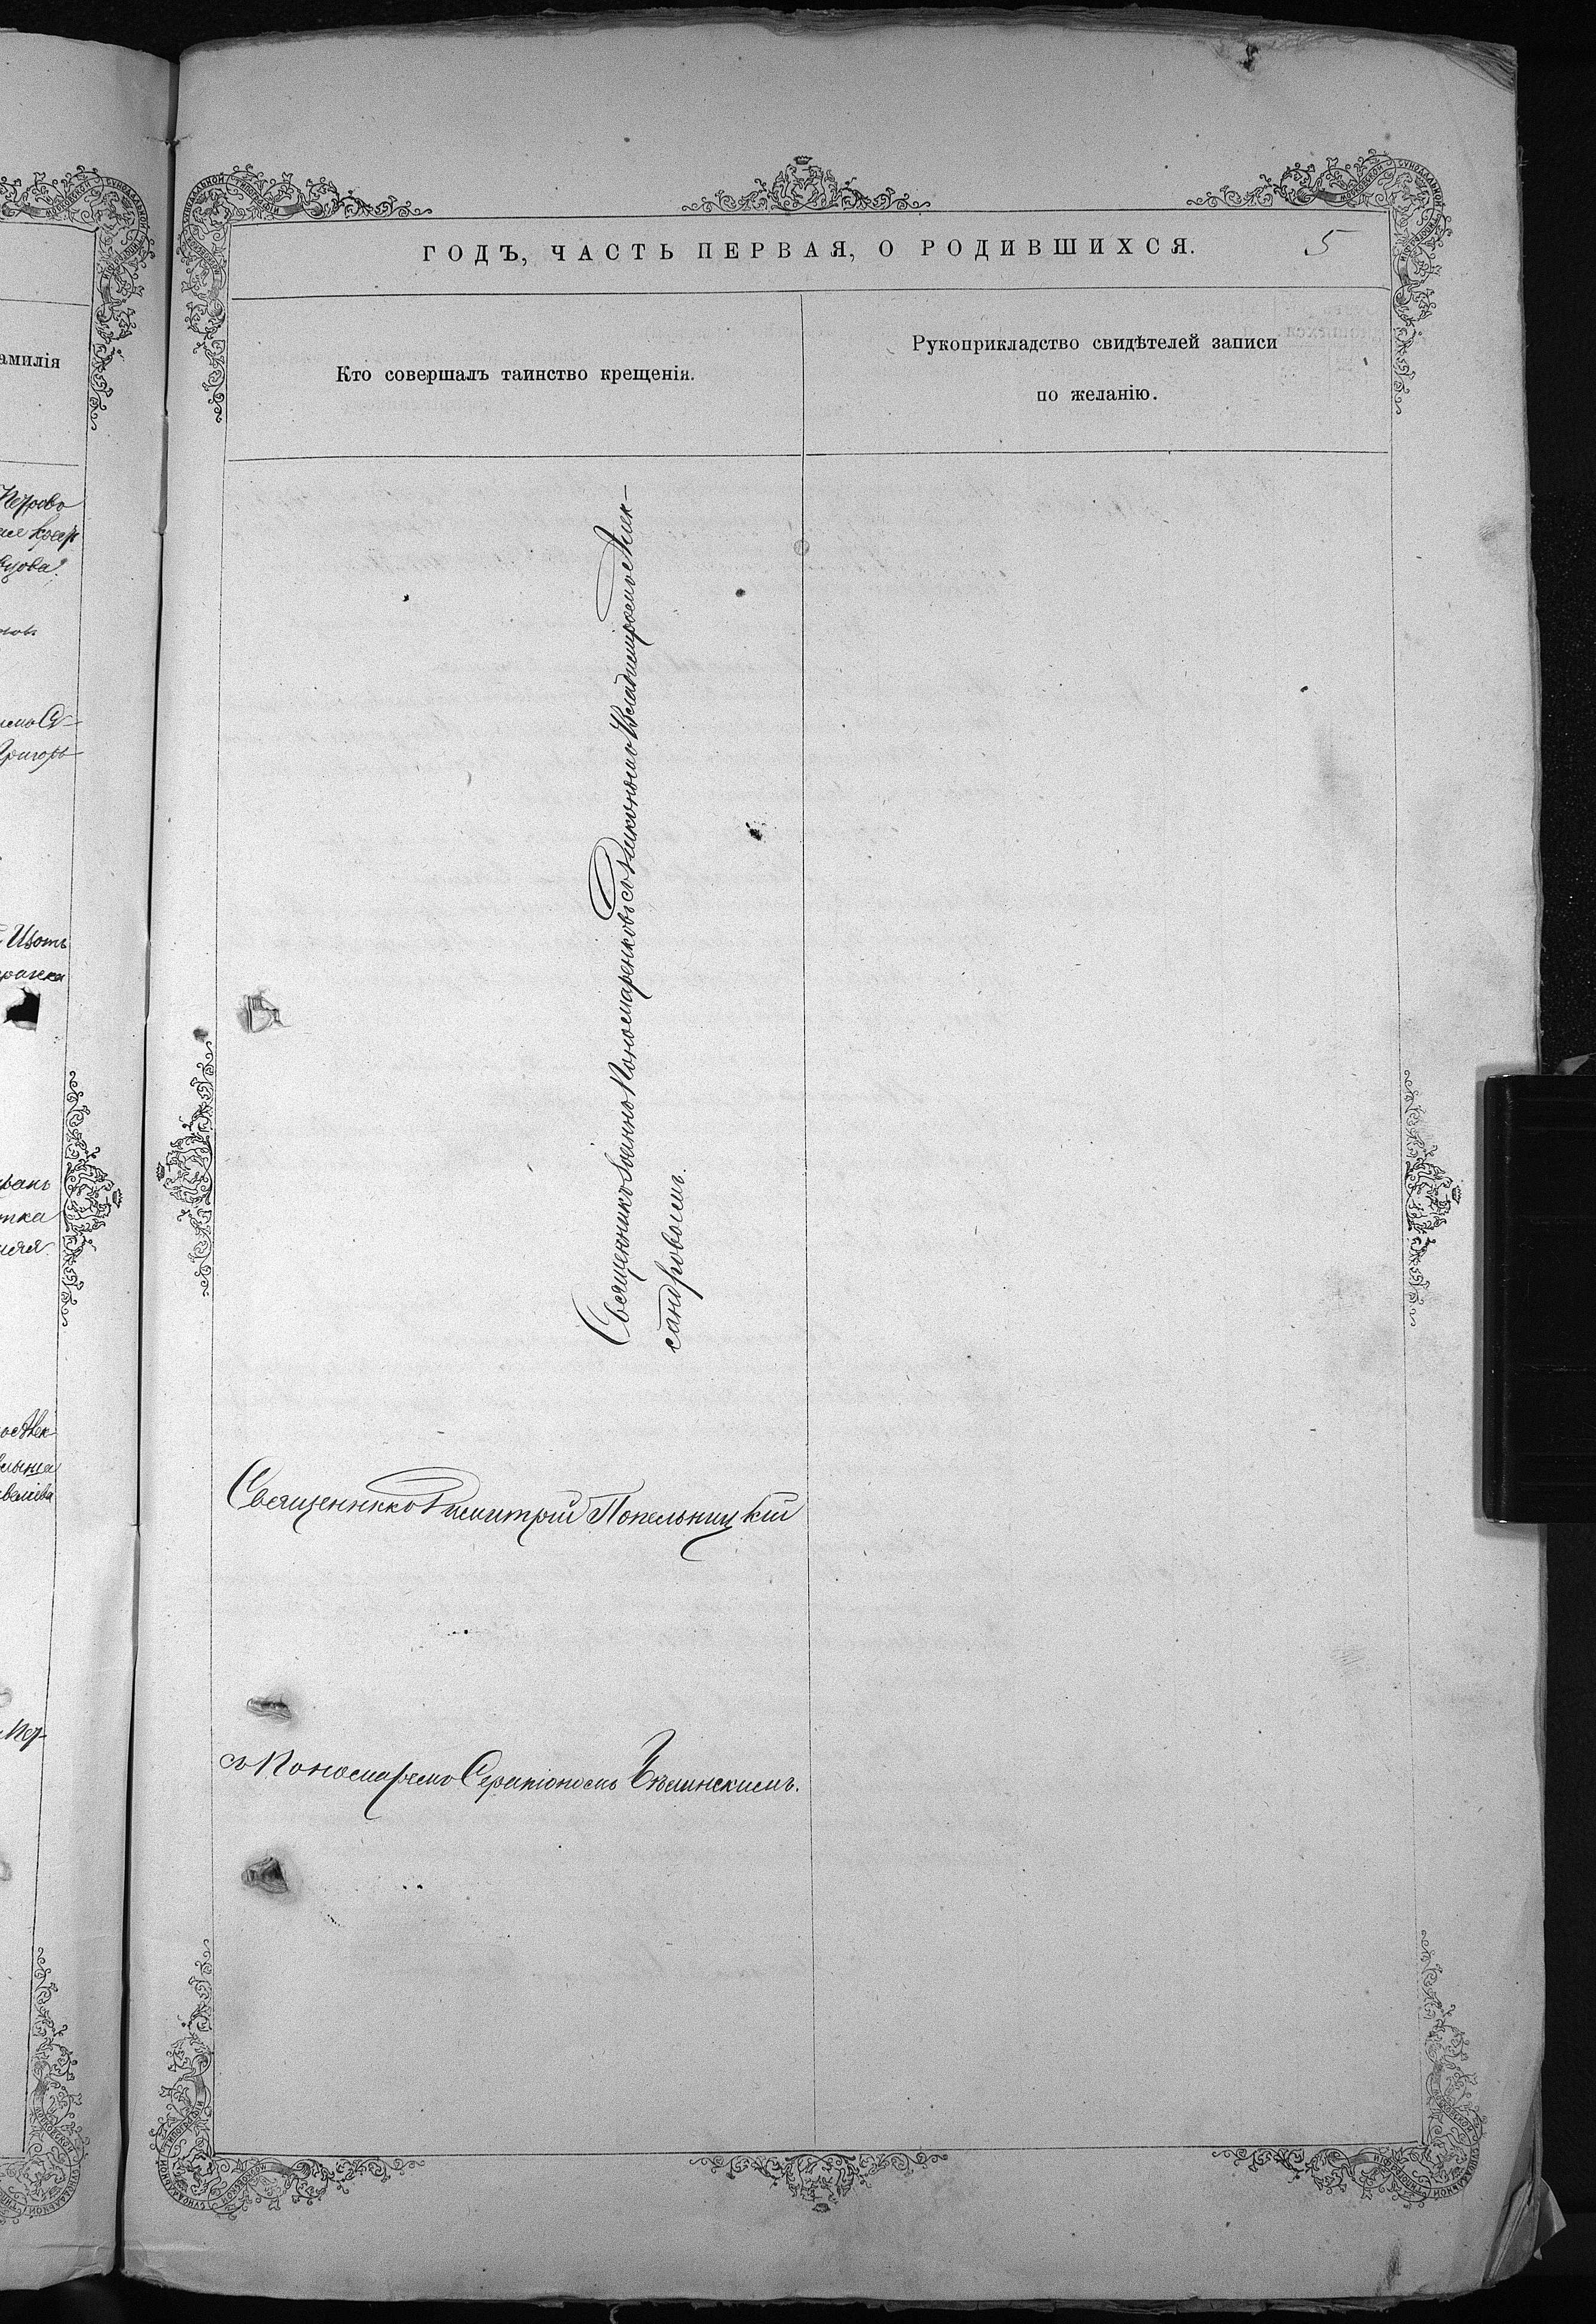 ГОДЪ, ЧАСТЬ ПЕРВАЯ, О РОДИВШИХСЯ.
5
Кто совершалъ таинство крещенія.
Рукоприкладство свидѣтелей записи
по желанію.
Священникъ Іоаннъ Пономаренковъ съ Дьякономъ Владиміромъ Алек-
сандровымъ.
Священникъ Димитрій Попельницкій
съ Пономаремъ Серапіономъ
амилія
Петровъ
Григорь